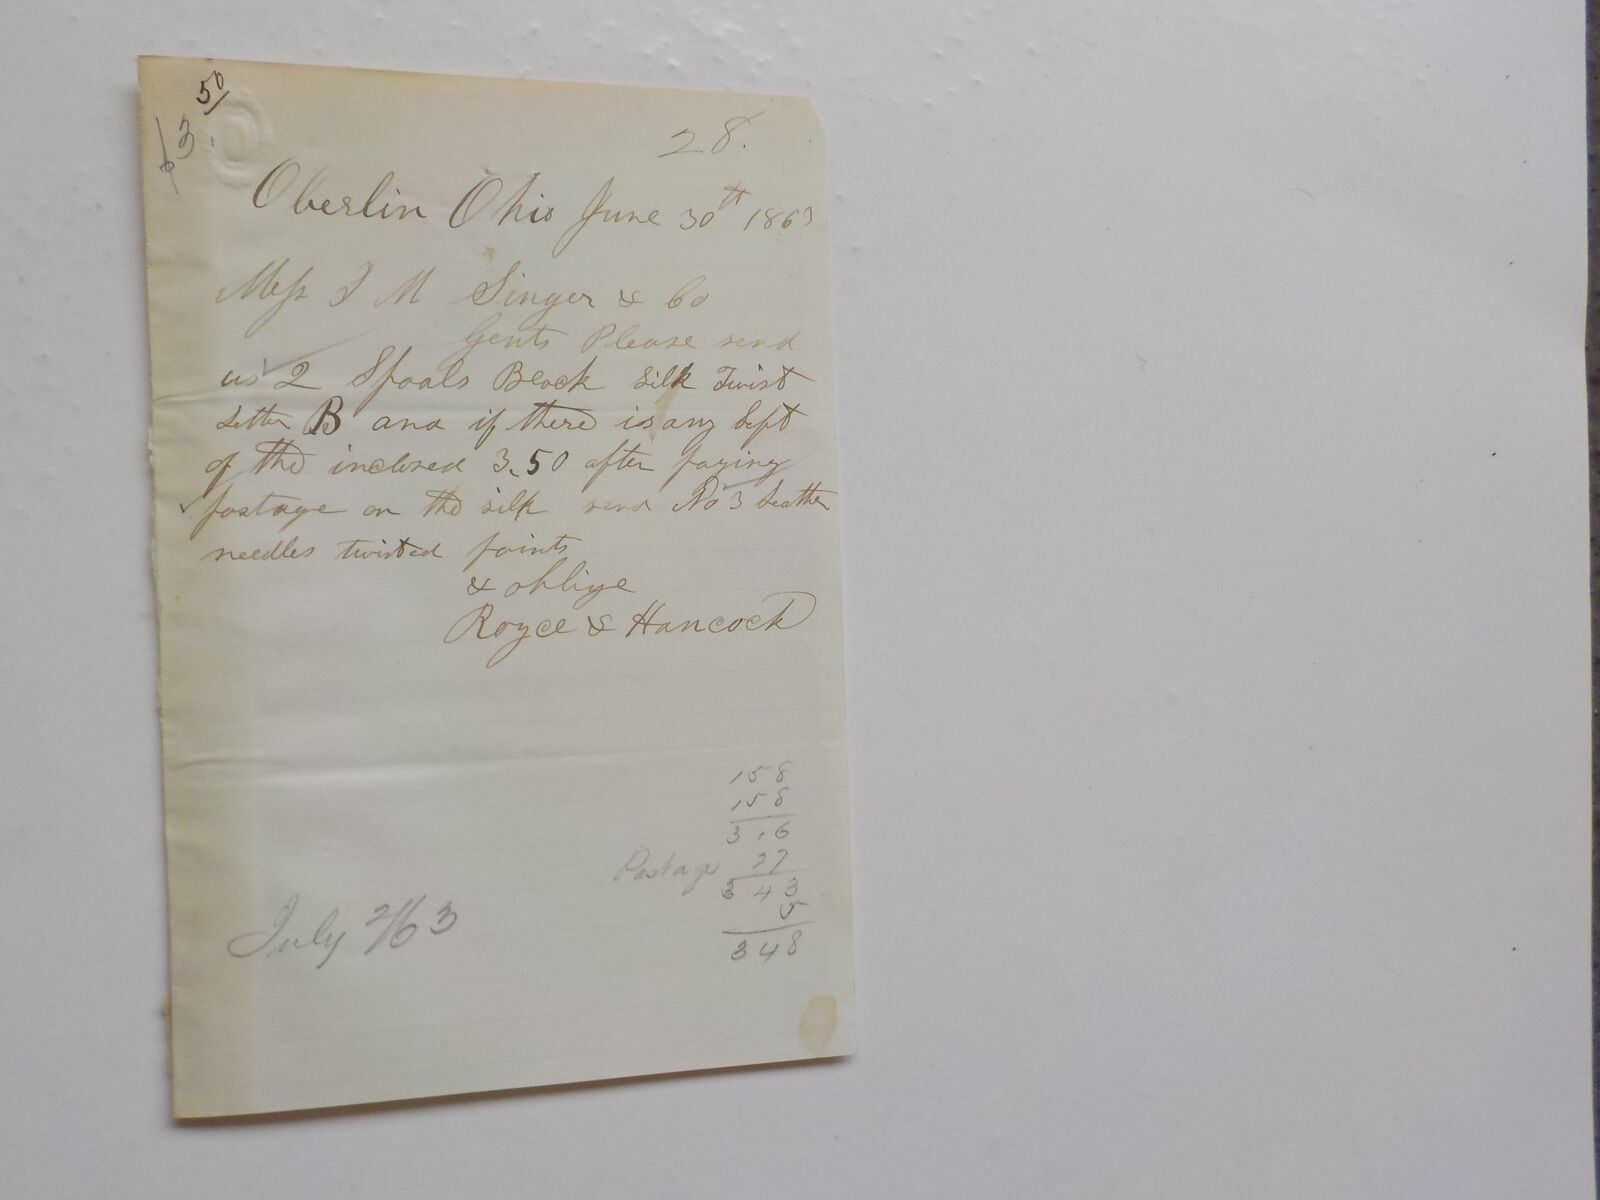 $3.50/
28.
Oberlin Ohio June 30th 1863
Mess I M Singer & Co
Gents Please send
us 2 Spools Black silk Twist
Letter B and if there is any left
of the inclosed 3.50 after paying
postage on the silk send No 3 Leather
needles twisted points
& oblige
Royce & Hancock
158
158
3,16
Postage 27
3 43
5
348
July 2/63